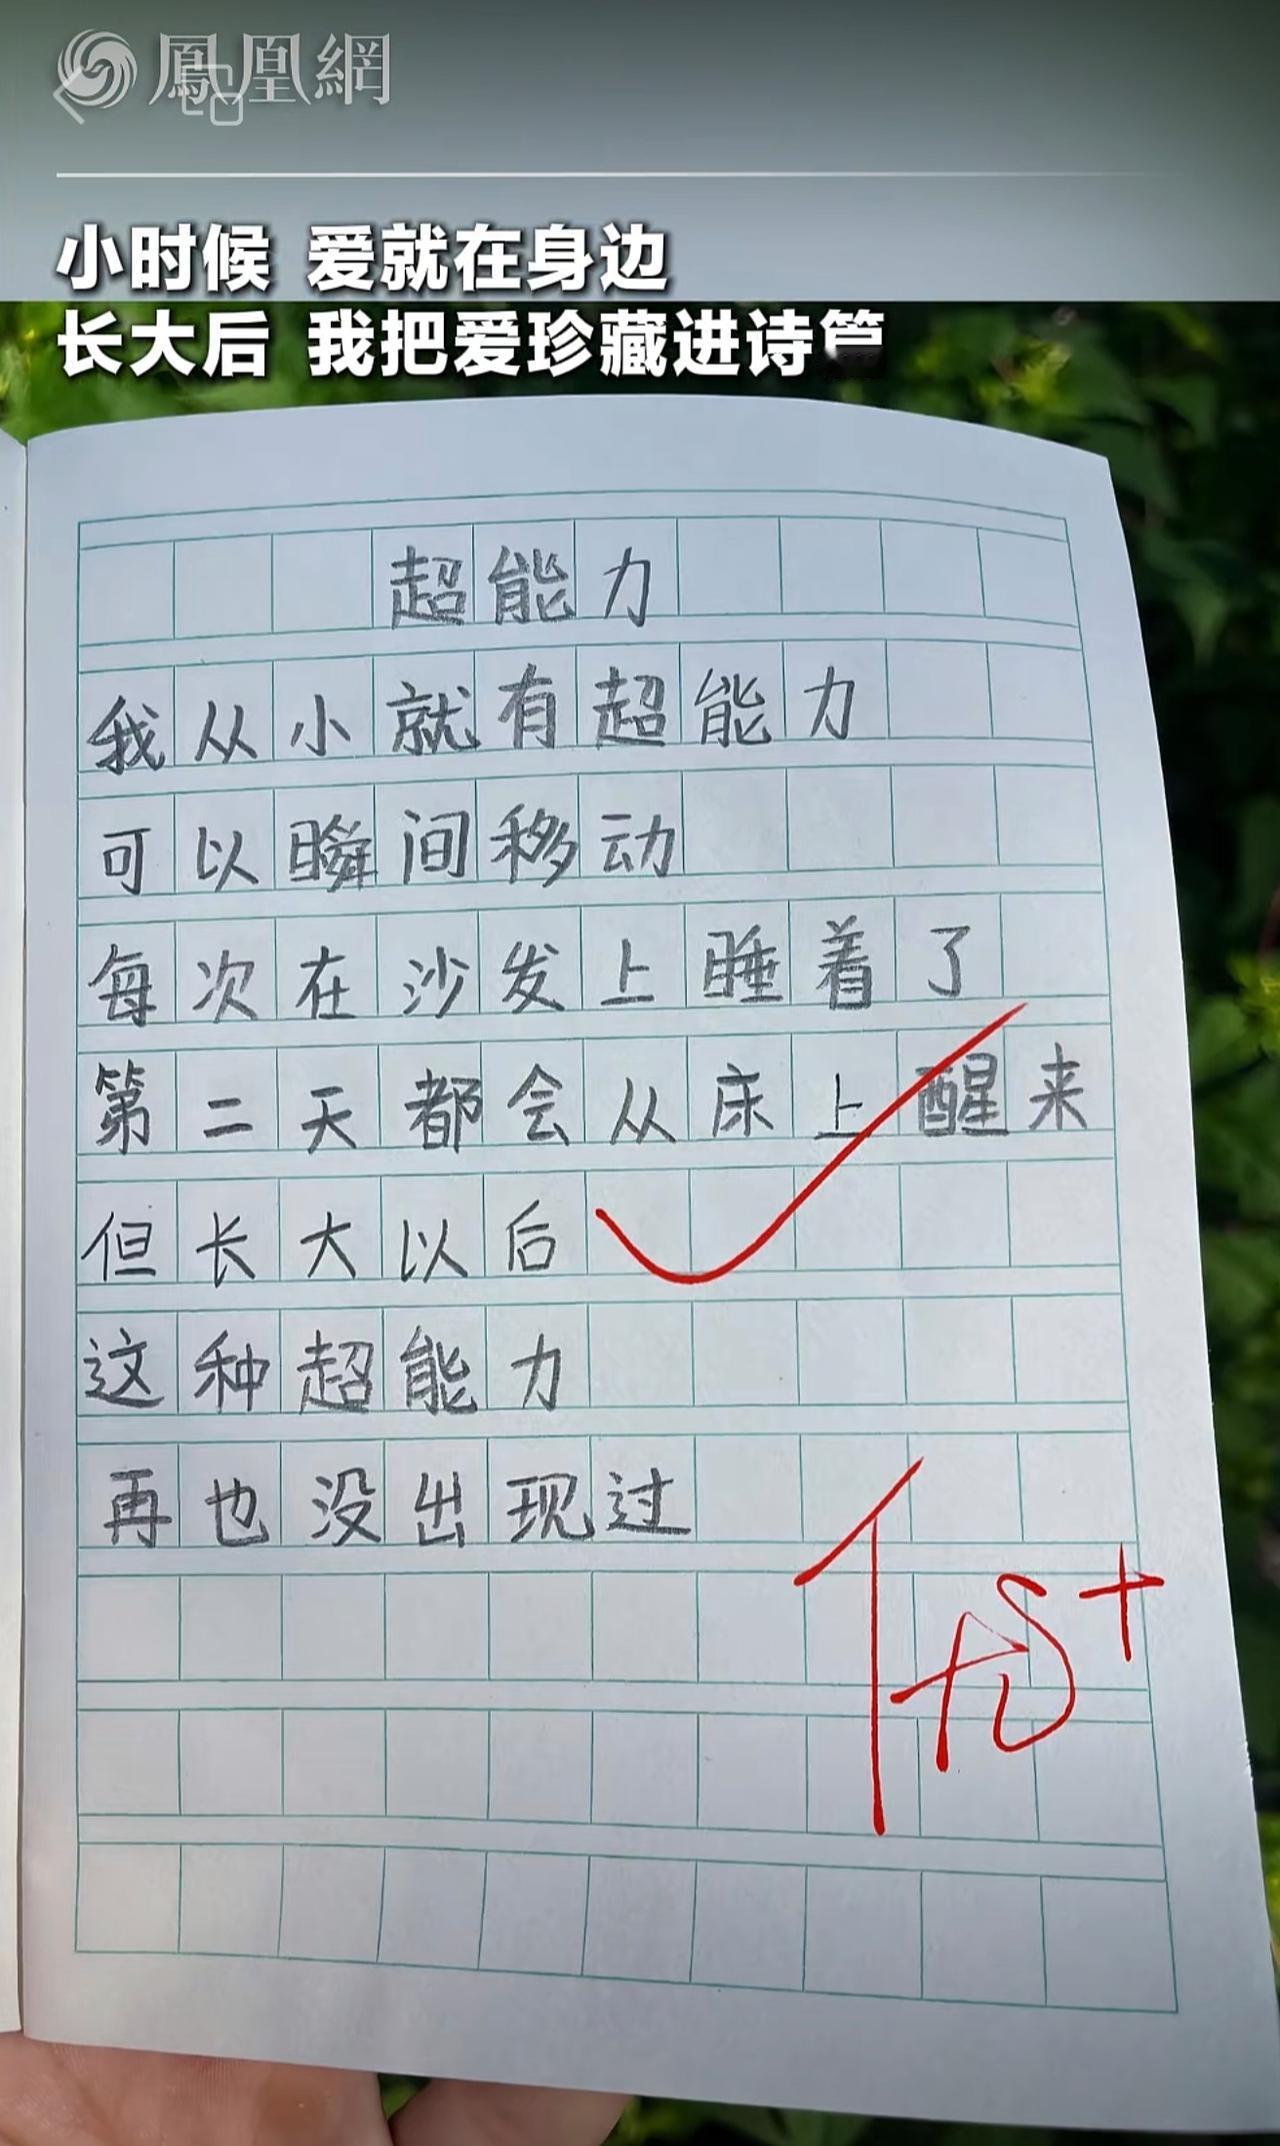 鳳凰網
小时候 爱就在身边
长大后 我把爱珍藏进诗篇
超能力
我从小就有超能力
可以瞬间移动
每次在沙发上睡着了
第二天都会从床上醒来
但长大以后
这种超能力
再也没出现过
优+